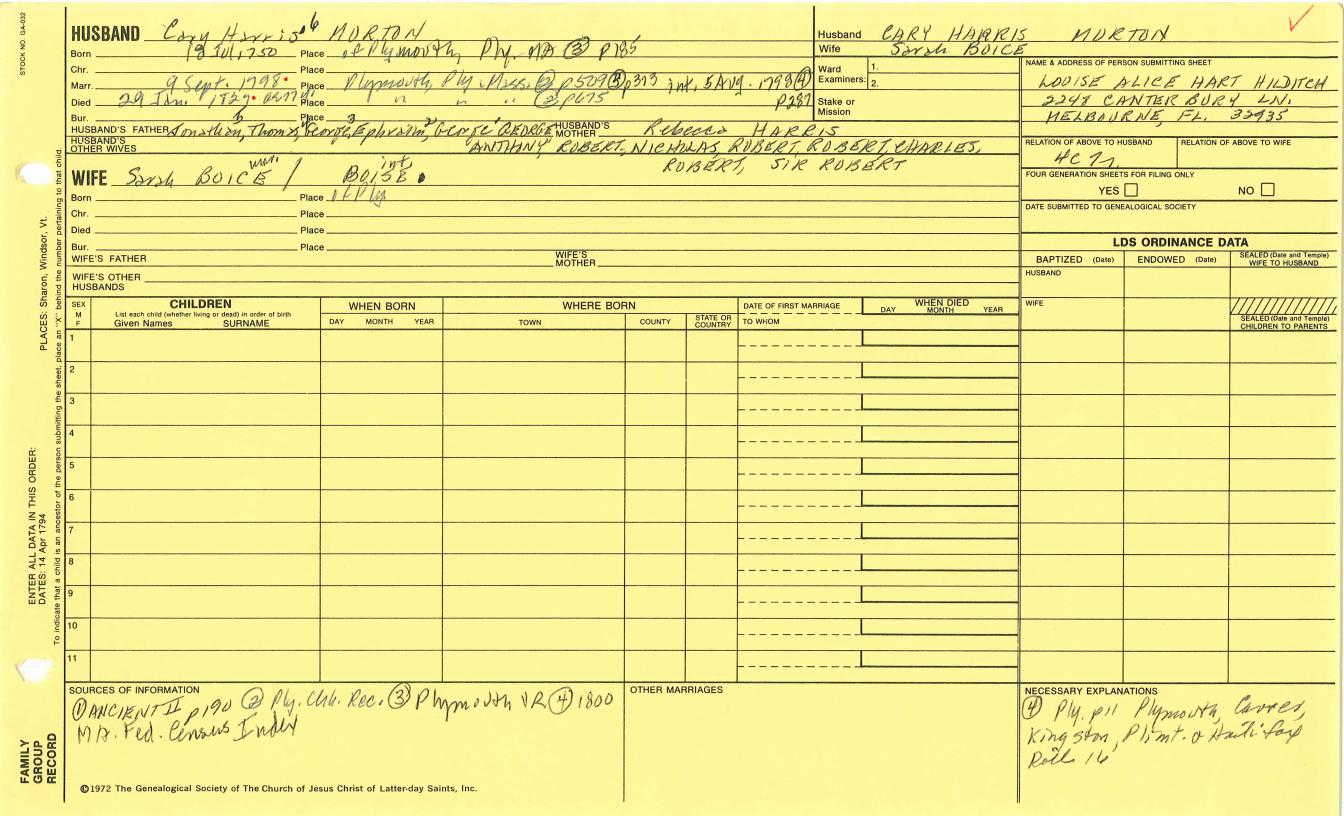 STOCK NO. GA-032
HUSBAND Cary Harris 6 MORTON
Born 18 Jul, 1750 Place of Plymouth, Ply. MA ③ p185
Chr. Place
Marr. 9 Sept. 1798 Place Plymouth Ply Mass. ② p509 p313 int. 5 Aug. 1798 ④ p287
Died 29 Jan. 1827 Place " " " ② p675
Bur. Place
HUSBAND'S FATHER Jonathan, Thomas, George, Ephraim, George GEORGE HUSBAND'S MOTHER Rebecca HARRIS
HUSBAND'S OTHER WIVES ANTHONY ROBERT, NICHOLAS, ROBERT, ROBERT, CHARLES,
ROBERT, SIR ROBERT
WIFE Sarah BOICE mar. / BOISE int.
Born Place of Ply
Chr. Place
Died Place
Bur. Place
WIFE'S FATHER WIFE'S MOTHER
WIFE'S OTHER HUSBANDS
Husband CARY HARRIS MORTON
Wife Sarah BOICE
Ward Examiners: 1.
2.
Stake or Mission
NAME & ADDRESS OF PERSON SUBMITTING SHEET
LOUISE ALICE HART HILDITCH
2248 CANTERBURY LN.
MELBOURNE, FL. 32935
RELATION OF ABOVE TO HUSBAND RELATION OF ABOVE TO WIFE
4C
FOUR GENERATION SHEETS FOR FILING ONLY
YES NO
DATE SUBMITTED TO GENEALOGICAL SOCIETY
LDS ORDINANCE DATA
BAPTIZED (Date) ENDOWED (Date) SEALED (Date and Temple) WIFE TO HUSBAND
HUSBAND
WIFE
SEALED (Date and Temple) CHILDREN TO PARENTS
SEX M F
CHILDREN
List each child (whether living or dead) in order of birth
Given Names SURNAME
WHEN BORN
DAY MONTH YEAR
WHERE BORN
TOWN COUNTY STATE OR COUNTRY
DATE OF FIRST MARRIAGE
TO WHOM
WHEN DIED
DAY MONTH YEAR
1
2
3
4
5
6
7
8
9
10
11
SOURCES OF INFORMATION
① ANCIENT II p190 ② Ply. Chh. Rec. ③ Plymouth VR ④ 1800
MA. Fed. Census Index
OTHER MARRIAGES
NECESSARY EXPLANATIONS
④ Ply. p11 Plymouth, Carver,
Kingston, Plimt. & Halifax
Roll 16
©1972 The Genealogical Society of The Church of Jesus Christ of Latter-day Saints, Inc.
FAMILY GROUP RECORD
ENTER ALL DATA IN THIS ORDER:
DATES: 14 Apr 1794
PLACES: Sharon, Windsor, Vt.
To indicate that a child is an ancestor of the person submitting the sheet, place an "X" behind the number pertaining to that child.